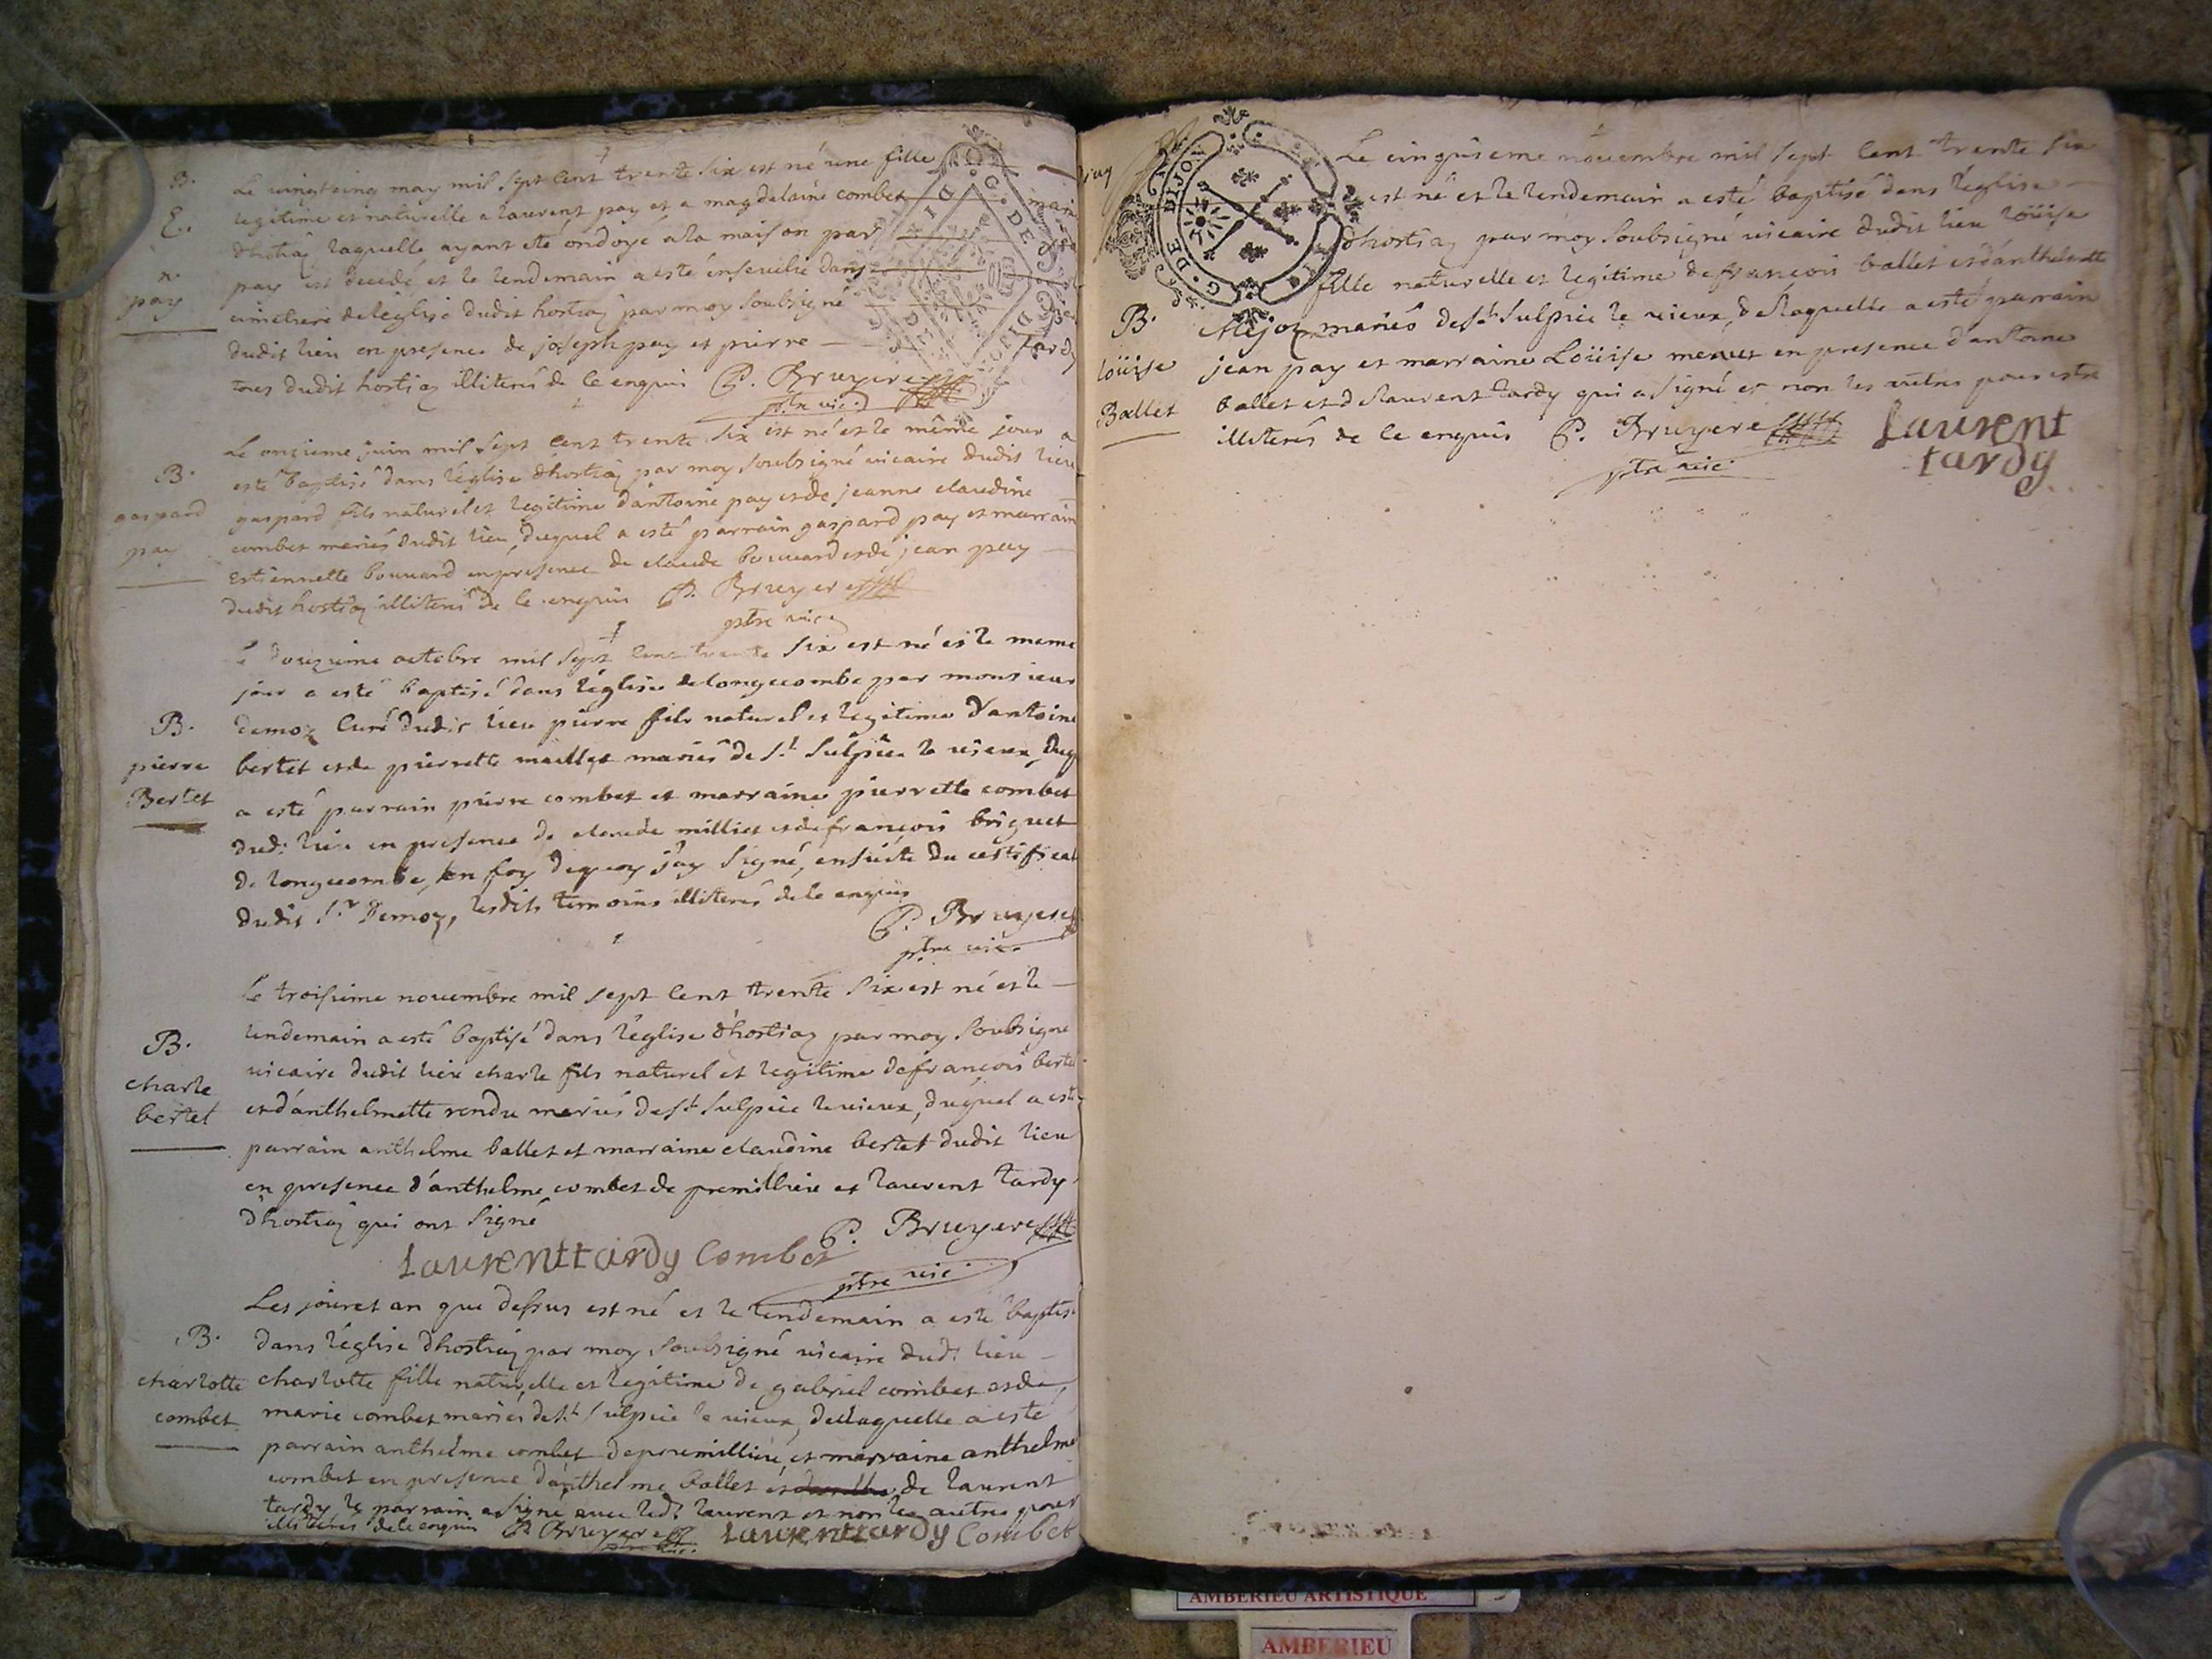 B.
E.
n.
pay
Le vingtcinq may mil sept cent trente six est né une fille
legitime et naturelle a laurent pay et a magdelaine combet
dhostiaz laquelle ayant eté ondoyé a la maison par
pay est decedé et le lendemain a esté ensevelie dans
cimetiere de léglise dudit hostiaz par moy soubsigné
dudit lieu en presence de joseph pay et pierre tardy
tous dudit hostiaz illiterés de ce enquis P. Bruyere
ptre vic.
B.
gaspard
pay
Le onzieme juin mil sept cent trente six est né et le même jour a
esté baptisé dans léglise dhostiaz par moy soubsigné vicaire dudit lieu
gaspard fils naturel et legitime dantoine pay et de jeanne claudine
combet mariés dudit lieu, duquel a esté parrain gaspard pay et marraine
estiennette bouvard en presence de claude bouvard et de jean pay
dudit hostiaz illiterés de ce enquis P. Bruyere
ptre vic.
B.
pierre
Bertet
Le douzieme octobre mil sept cent trente six est né et le meme
jour a esté baptisé dans léglise de longecombe par monsieur
demoz Curé dudit lieu pierre fils naturel et legitime d'antoine
bertet et de pierrette maillet mariés de St. Sulpice le vieux, duq
a esté parrain pierre combet et marraine pierrette combet
dud. lieu en presence de claude milliet et de francois briguet
de longecombe, en foy dequoy j'ay signé, ensuite du certificat
dudit Sr. Demoz, lesdits temoins illiterés de ce enquis
P. Bruyere
ptre vic.
B.
charle
bertet
Le troisieme novembre mil sept cent trente six est né et le
lendemain a esté baptisé dans léglise d'hostiaz par moy soubsigné
vicaire dudit lieu charle fils naturel et legitime de francois bertet
et d'anthelmette rendu mariés de St. Sulpice le vieux, duquel a esté
parrain anthelme ballet et marraine claudine bertet dudit lieu
en presence d'anthelme combet de premillieu et laurent tardy
d'hostiaz qui ont signé
P. Bruyere
Laurent tardy Combet
ptre vic.
B.
charlotte
combet
Les jour et an que dessus est né et le lendemain a esté baptisé
dans léglise dhostiaz par moy soubsigné vicaire dud. lieu
charlotte fille naturelle et legitime de gabriel combet et de
marie combet mariés de St. Sulpice le vieux, dellaquelle a esté
parrain anthelme combet de premillieu, et marraine anthelme
combet en presence d'anthelme ballet et de laurent
tardy le parrain a signé avec led. laurent et non les autres pour
illiterés de ce enquis P. Bruyere Laurent tardy Combet
ptre vic.
G. DE DIJON
Le cinquieme novembre mil sept cent trente six
est né et le lendemain a esté baptisé dans léglise
dhostiaz par moy soubsigné vicaire dudit lieu loüise
fille naturelle et legitime de francois ballet et d'anthelmette
B.
loüise
Ballet
mariés de St. Sulpice le vieux, dellaquelle a esté parrain
jean pay et marraine Loüise en presence dantoine
ballet et de laurent tardy qui a signé et non les autres pour estre
illiterés de ce enquis P. Bruyere Laurent
tardy
ptre vic.
AMBERIEU ARTISTIQUE
AMBERIEU